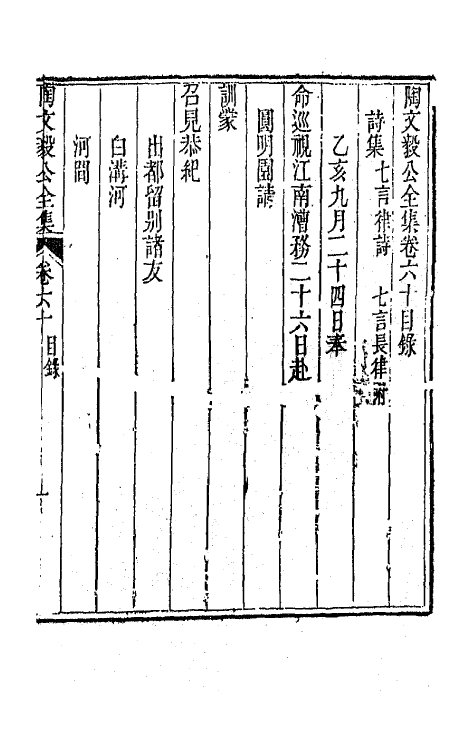 陶文毅公全集卷六十目錄
詩集 七言律詩 七言長律附
乙亥九月二十四日奉
命巡視江南漕務二十六日赴
圓明園請
訓蒙
召見恭紀
出都留別諸友
白溝河
河間
陶文毅公全集 卷六十 目錄